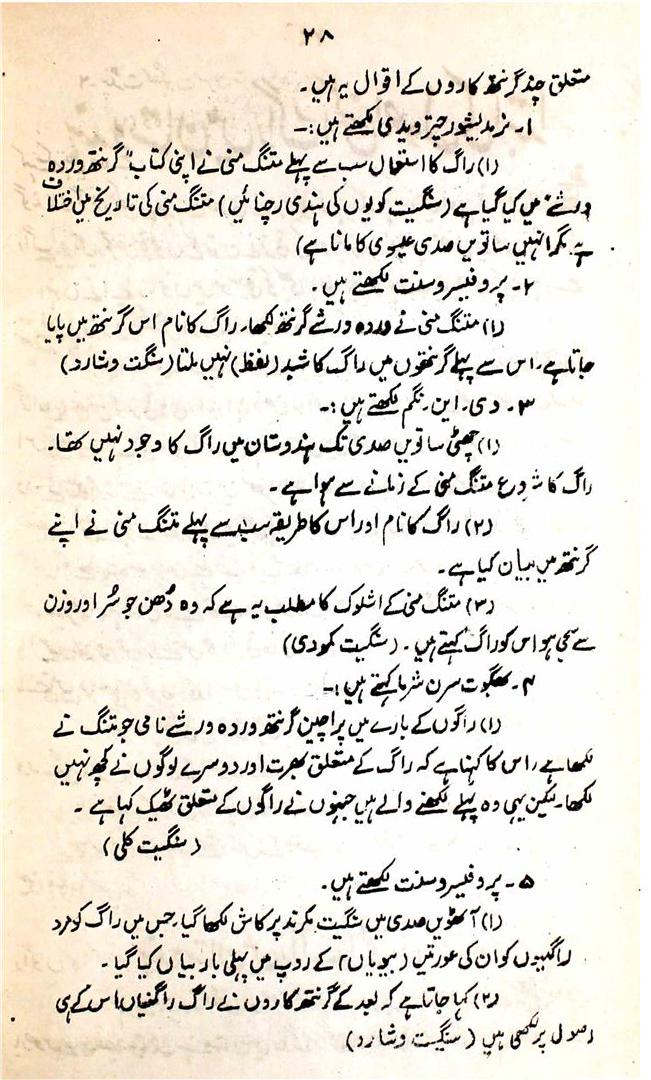 ۲۸
متعلق چند گرنتھ کاروں کے اقوال یہ ہیں۔
۱۔ نرمدیشور چترویدی لکھتے ہیں:۔
(۱) راگ کا استعمال سب سے پہلے متنگ منی نے اپنی کتاب "گرنتھ وردہ
ورشے" میں کیا گیا ہے (سنگیت کویوں کی ہندی رچنائیں) متنگ منی کی تاریخ میں اختلاف
ہے مگر انہیں ساتویں صدی عیسوی کا مانا ہے)
۲۔ پروفیسر وسنت لکھتے ہیں۔
(۱) متنگ منی نے وردہ ورشے گرنتھ لکھا۔ راگ کا نام اس گرنتھ میں پایا
جاتا ہے۔ اس سے پہلے گرنتھوں میں راگ کا شبد (لفظ) نہیں ملتا (سنگت وشارد)
۳۔ وی۔ این۔ نگم لکھتے ہیں:۔
(۱) چھٹی ساتویں صدی تک ہندوستان میں راگ کا وجود نہیں تھا۔
راگ کا شروع متنگ منی کے زمانے سے ہوا ہے۔
(۲) راگ کا نام اور اس کا طریقہ سب سے پہلے متنگ منی نے اپنے
گرنتھ میں بیان کیا ہے۔
(۳) متنگ منی کے اشلوک کا مطلب یہ ہے کہ وہ دُھن جو سُر اور وزن
سے سجی ہو اس کو راگ کہتے ہیں۔ (سنگیت کمودی)
۴۔ بھگوت سرن شرما کہتے ہیں:۔
(۱) راگوں کے بارے میں پراچین گرنتھ وردہ ورشے نامی جو متنگ نے
لکھا ہے، اس کا کہنا ہے کہ راگ کے متعلق بھرت اور دوسرے لوگوں نے کچھ نہیں
لکھا۔ لیکن یہی وہ پہلے لکھنے والے ہیں جنہوں نے راگوں کے متعلق ٹھیک کہا ہے۔
(سنگیت کلی)
۵۔ پروفیسر وسنت لکھتے ہیں۔
(۱) آٹھویں صدی میں سنگیت مکرند پرکاش لکھا گیا، جس میں راگ کو مرد
راگنیوں کو ان کی عورتیں (بیویاں) کے روپ میں پہلی بار بیاں کیا گیا۔
(۲) کہا جاتا ہے کہ بعد کے گرنتھ کاروں نے راگ راگنیاں اس کے ہی
اصول پر لکھی ہیں (سنگیت وشارد)